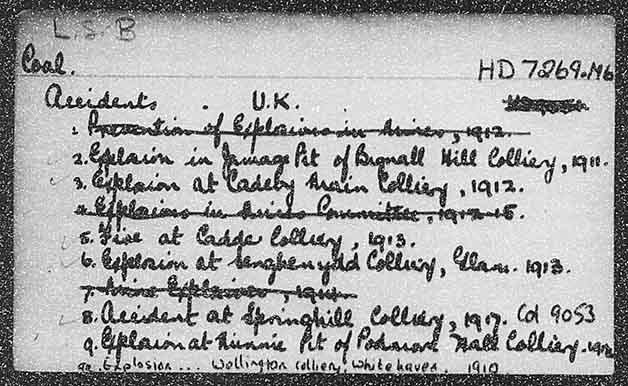 L.S.B
Coal.
HD 7269.M6
Accidents . U.K.
1. Prevention of Explosions in Mines, 1912.
2. Explosion in Jamage Pit of Bignall Hill Colliery, 1911.
3. Explosion at Cadeby Main Colliery, 1912.
4. Explosions in Mines Committee, 1912-15.
5. Fire at Cadder Colliery, 1913.
6. Explosion at Senghenydd Colliery, Glam. 1913.
7. Mine Explosions, 1914.
8. Accident at Springhill Colliery, 1917. Cd 9053
9. Explosion at Minnie Pit of Podmore Hall Colliery. 1918
Explosion ... Wellington Colliery, Whitehaven. 1910